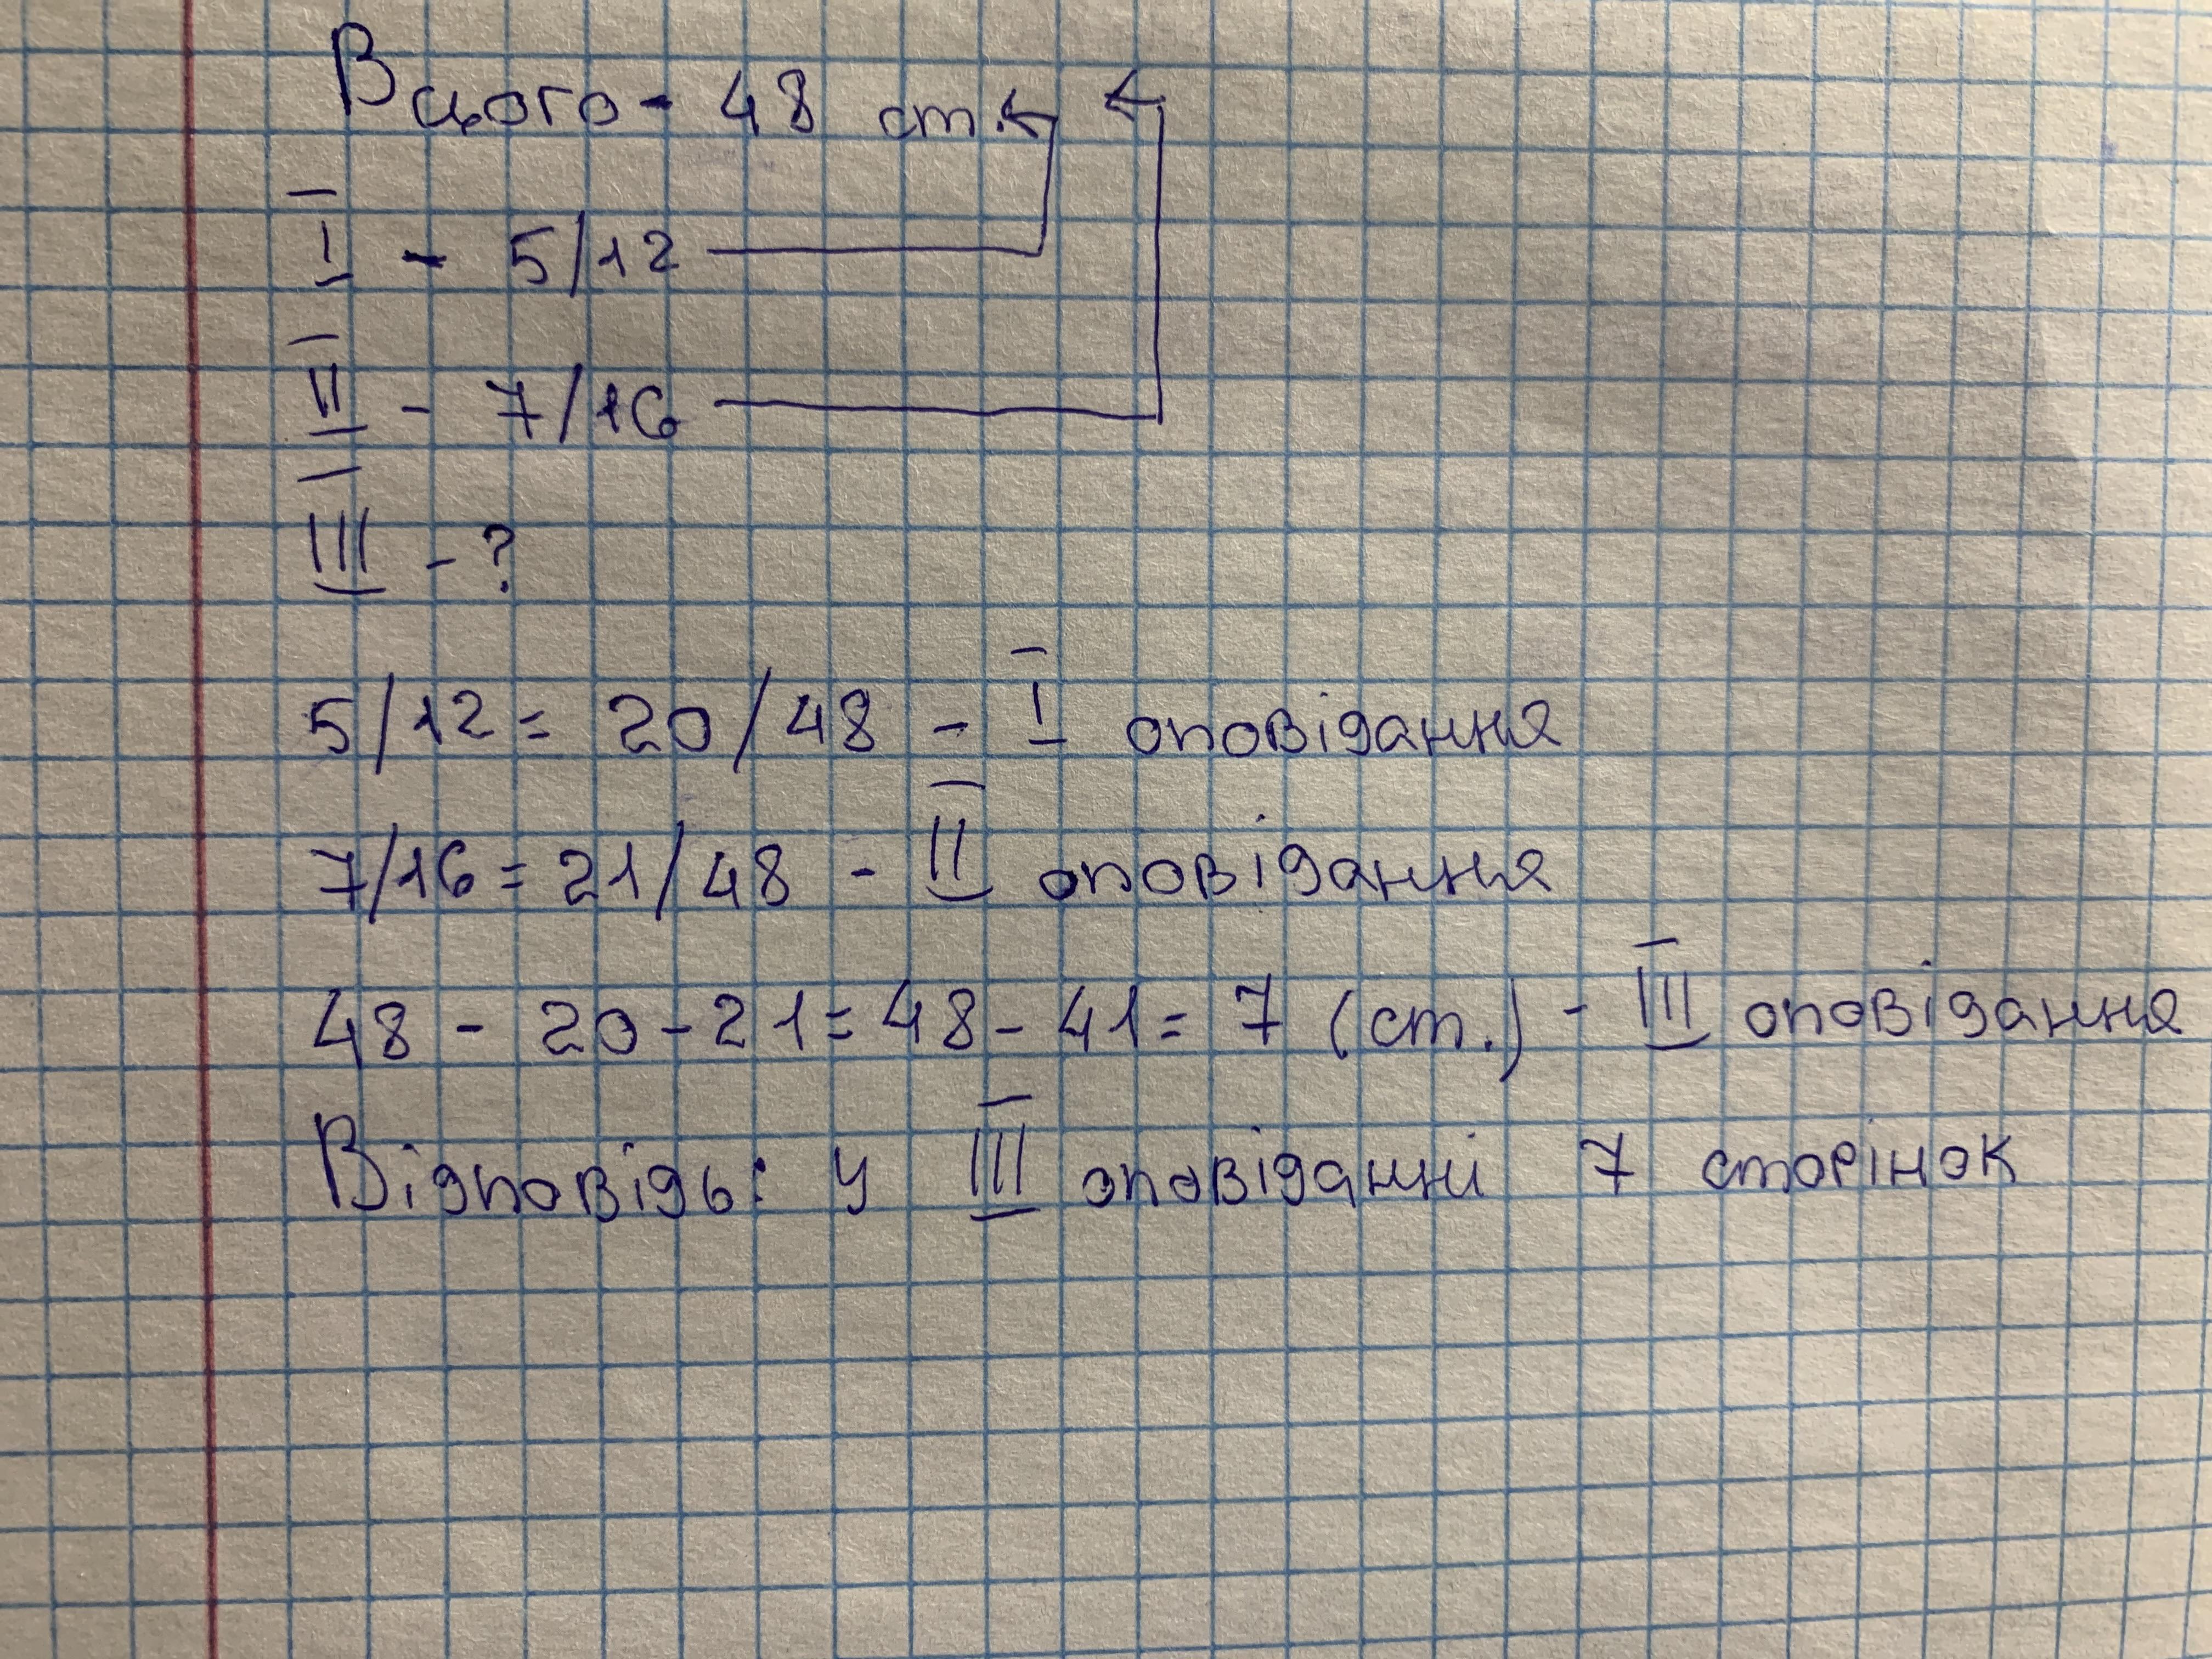 Всього - 48 ст.
I - 5/12
II - 7/16
III - ?
5/12 = 20/48 - I оповідання
7/16 = 21/48 - II оповідання
48 - 20 - 21 = 48 - 41 = 7 (ст.) - III оповідання
Відповідь: у III оповіданні 7 сторінок